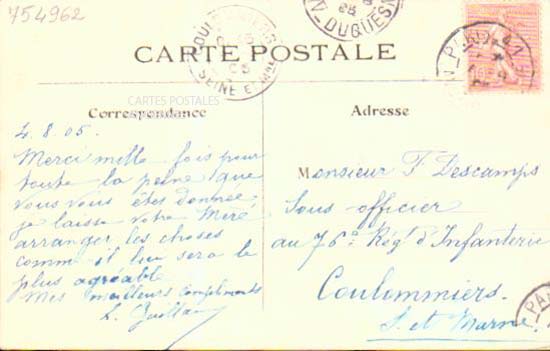 754962
CARTE POSTALE
CARTES POSTALES
Correspondance
Adresse
4.8.05.
Merci mille fois pour
toute la peine que
vous vous êtes donnée,
je laisse votre Mère
arranger les choses
comme il lui sera le
plus agréable
Mes meilleurs compliments
Monsieur F Descamps
Sous officier
au 76e Régt d'Infanterie
Coulommiers.
S. et Marne.
SEINE ET
DUQUESN
PARIS
PAR